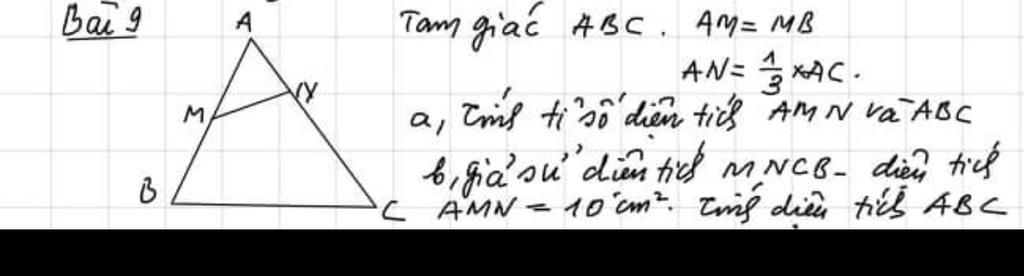 Bài 9
A
M
N
B
C
Tam giác ABC. AM = MB
AN = 1/3 × AC.
a, Tính tỉ số diện tích AMN và ABC
b, giả sử diện tích MNCB - diện tích
AMN = 10 cm². Tính diện tích ABC